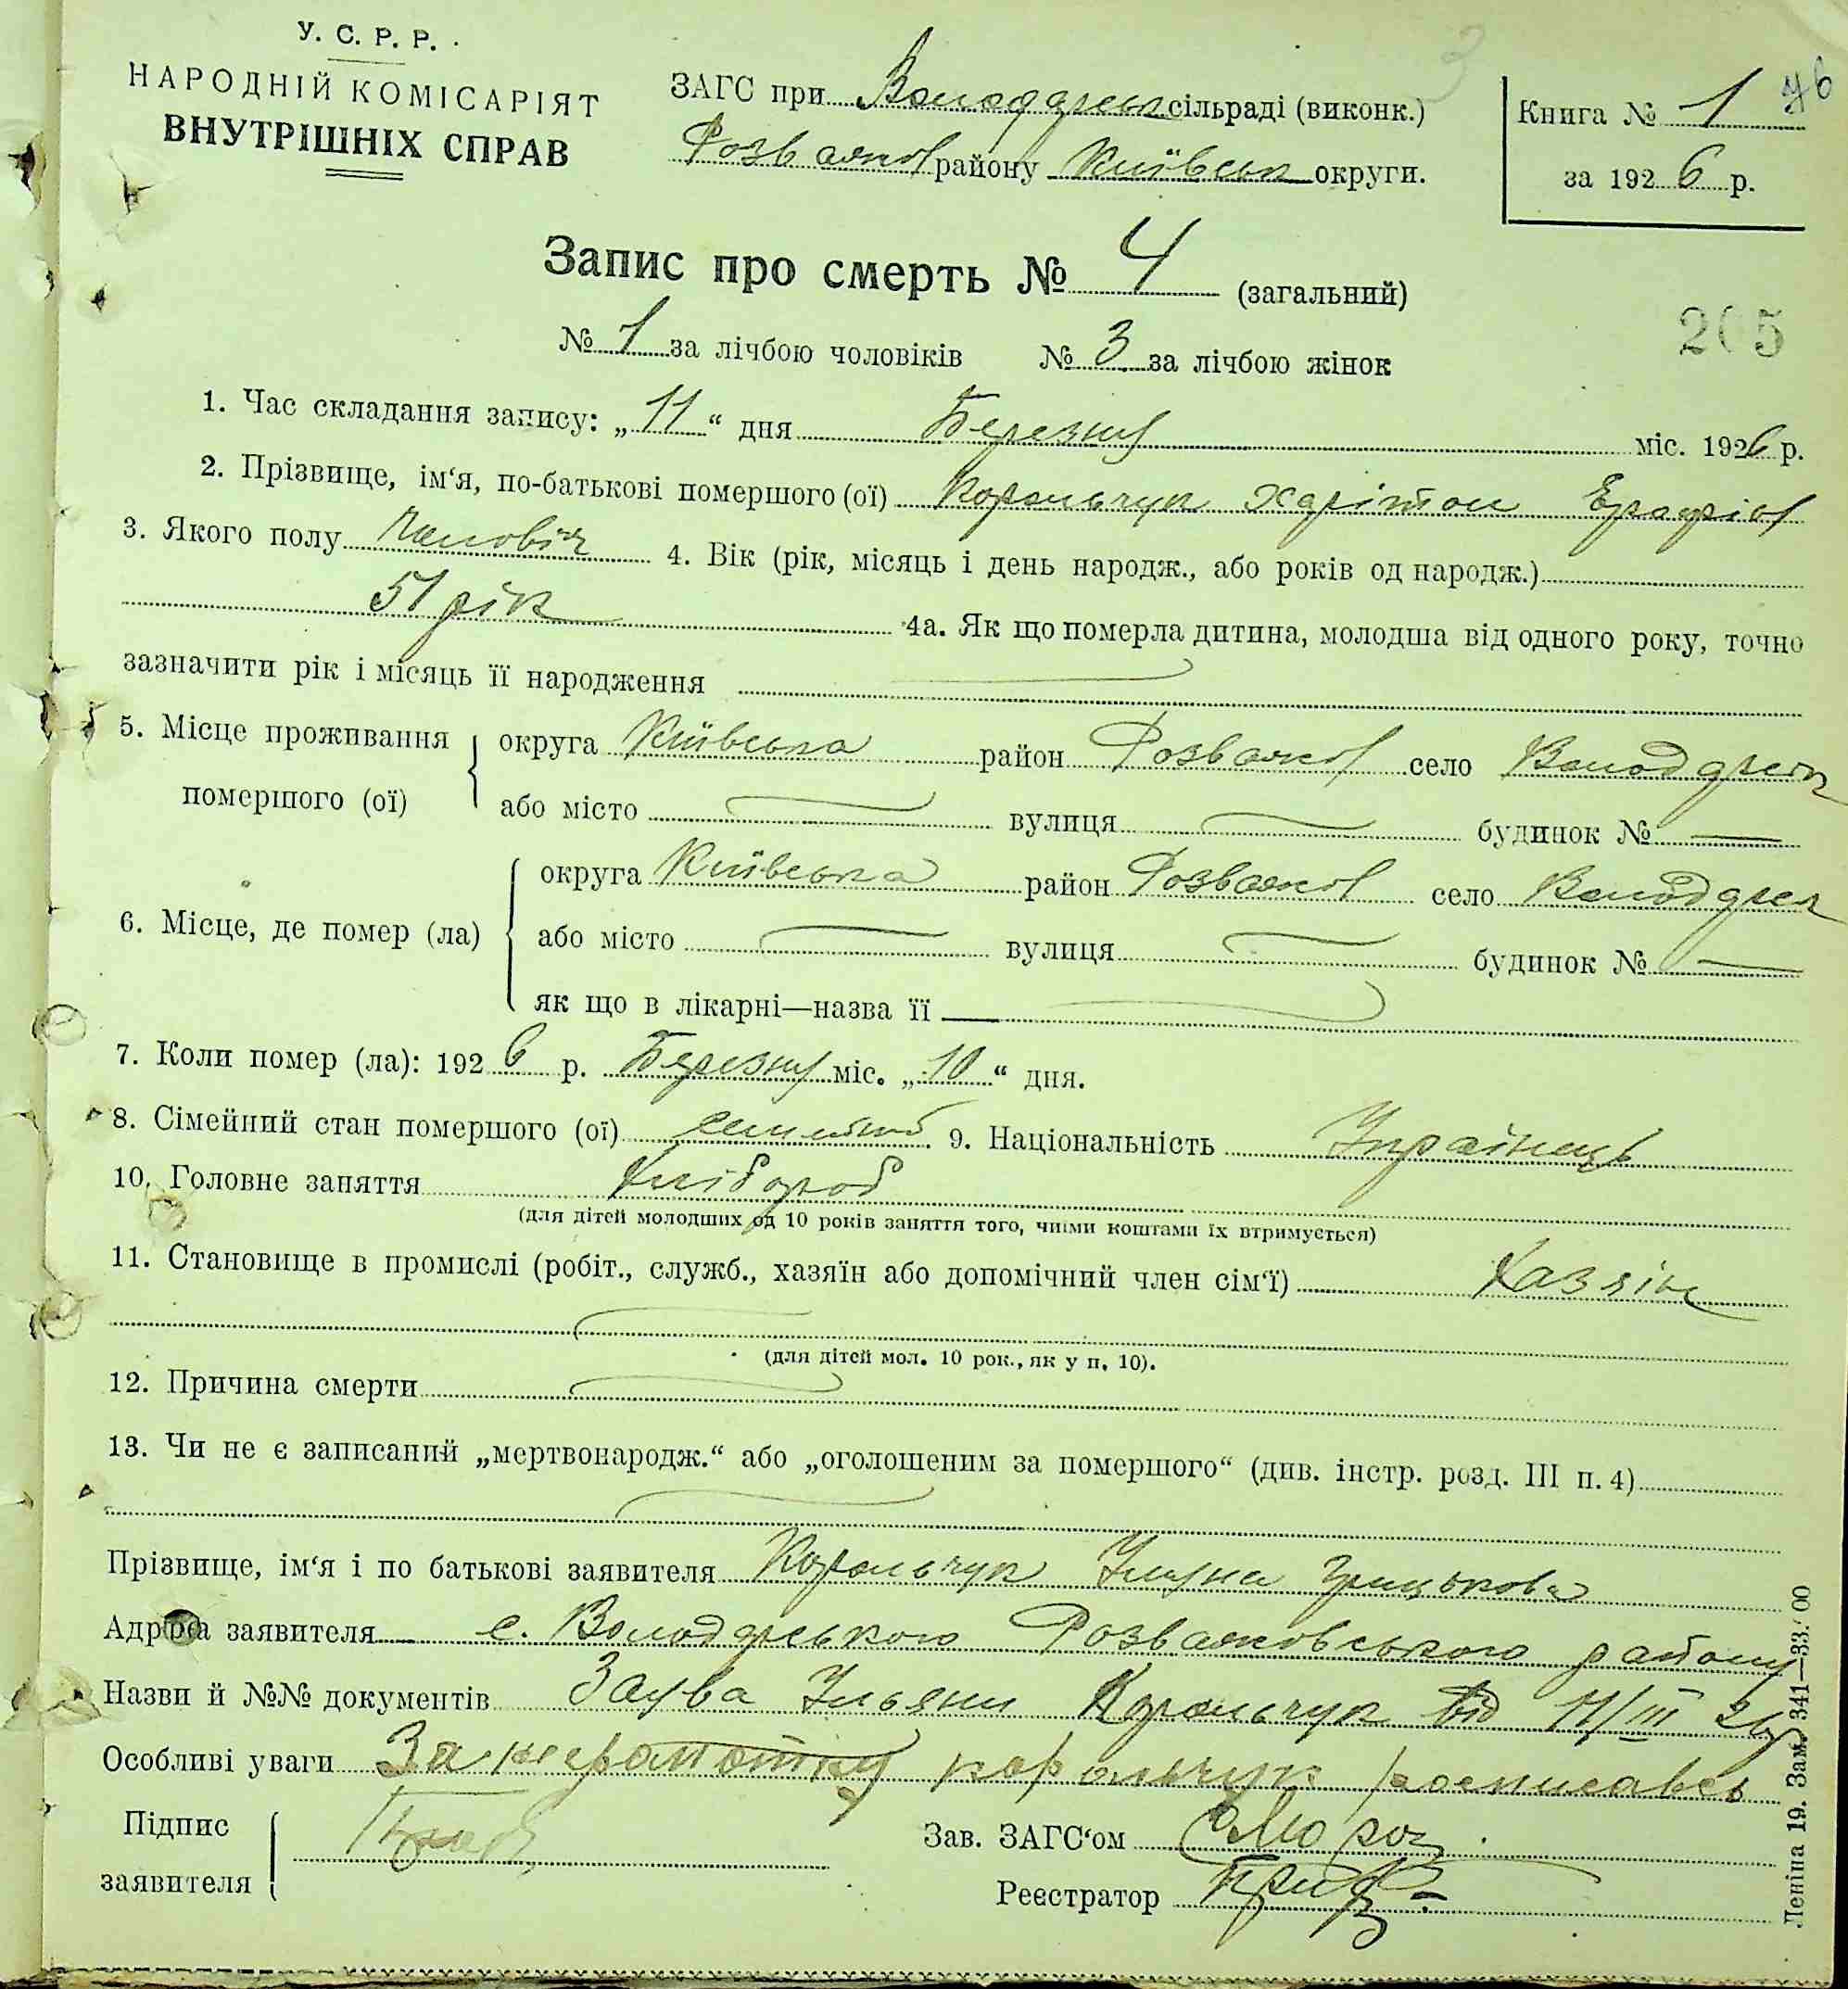 У. С. Р. Р.
НАРОДНІЙ КОМІСАРІЯТ
ВНУТРІШНІХ СПРАВ
ЗАГС при Володарськ сільраді (виконк.)
Розважів району Київськ округи.
Книга № 1
за 1926 р.
46
Запис про смерть № 4 (загальний)
№ 1 за лічбою чоловіків № 3 за лічбою жінок
205
1. Час складання запису: „11“ дня Березня міс. 1926 р.
2. Прізвище, ім‘я, по-батькові помершого (ої) Корольчук Харітон
3. Якого полу Чоловіч 4. Вік (рік, місяць і день народж., або років од народж.)
51 рік 4а. Як що померла дитина, молодша від одного року, точно
зазначити рік і місяць її народження
5. Місце проживання помершого (ої) округа Київська район Розважів село Володарськ
або місто вулиця будинок №
6. Місце, де помер (ла) округа Київська район Розважів село Володарск
або місто вулиця будинок №
як що в лікарні—назва її
7. Коли помер (ла): 1926 р. Березня міс. „10“ дня.
8. Сімейний стан помершого (ої) семейний 9. Національність Українець
10. Головне заняття Хлібороб
(для дітей молодших од 10 років заняття того, чиїми коштами їх втримується)
11. Становище в промислі (робіт., служб., хазяїн або допомічний член сім‘ї) Хазяін
(для дітей мол. 10 рок., як у п. 10).
12. Причина смерти
13. Чи не є записаний „мертвонародж.“ або „оголошеним за помершого“ (див. інстр. розд. III п. 4)
Прізвище, ім‘я і по батькові заявителя Корольчук Уляна Грицькова
Адреса заявителя с. Володарського Розважовського району
Назви й №№ документів Заява Ульяни Корольчук від 11/III 26
Особливі уваги За неграмотну корольчук росписавсь
Підпис заявителя
Зав. ЗАГС‘ом Мороз
Реєстратор
Леніна 19. Зам. 341—33.000